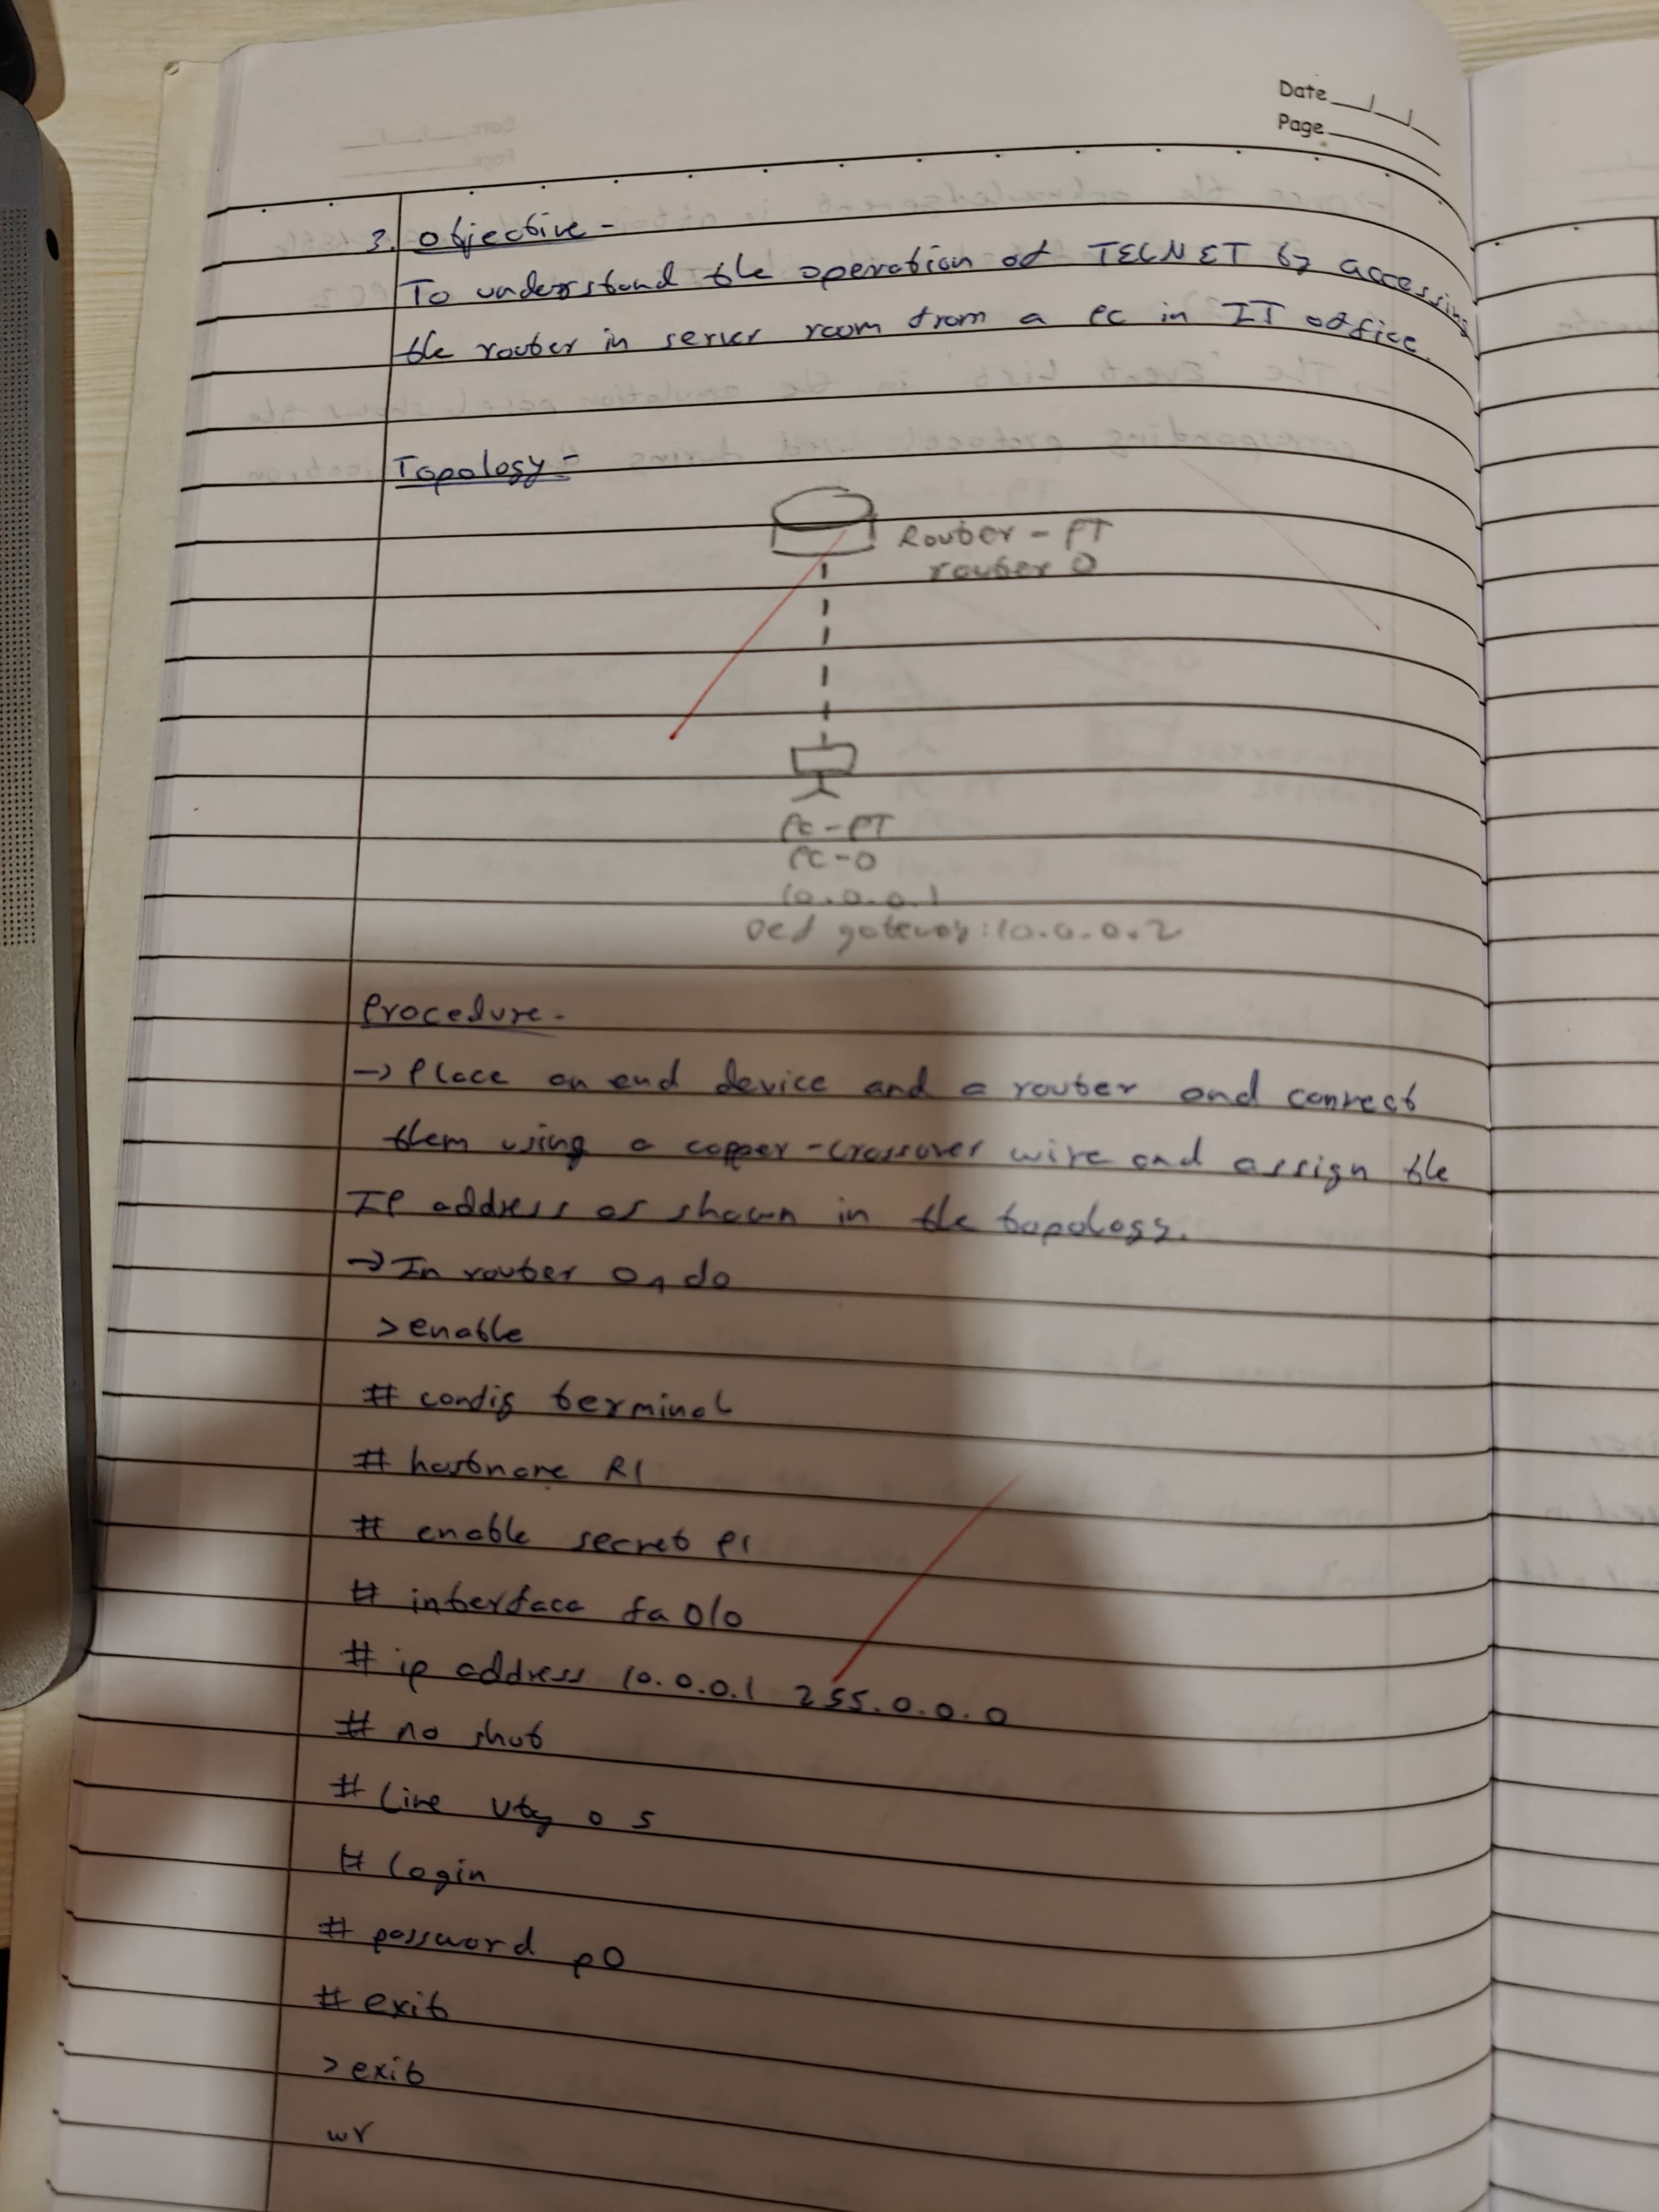 Date
Page
3. Objective -
To understand the operation of TELNET by accessing
the router in server room from a PC in IT office.
Topology -
Router - PT
router 0
PC - PT
PC - 0
10.0.0.1
Def gateway : 10.0.0.2
Procedure -
→ Place an end device and a router and connect
them using a copper - crossover wire and assign the
IP address as shown in the topology.
→ In router 0, do
> enable
# config terminal
# hostname R1
# enable secret p1
# interface fa 0/0
# ip address 10.0.0.1 255.0.0.0
# no shut
# line vty 0 5
# login
# password p0
# exit
> exit
wr